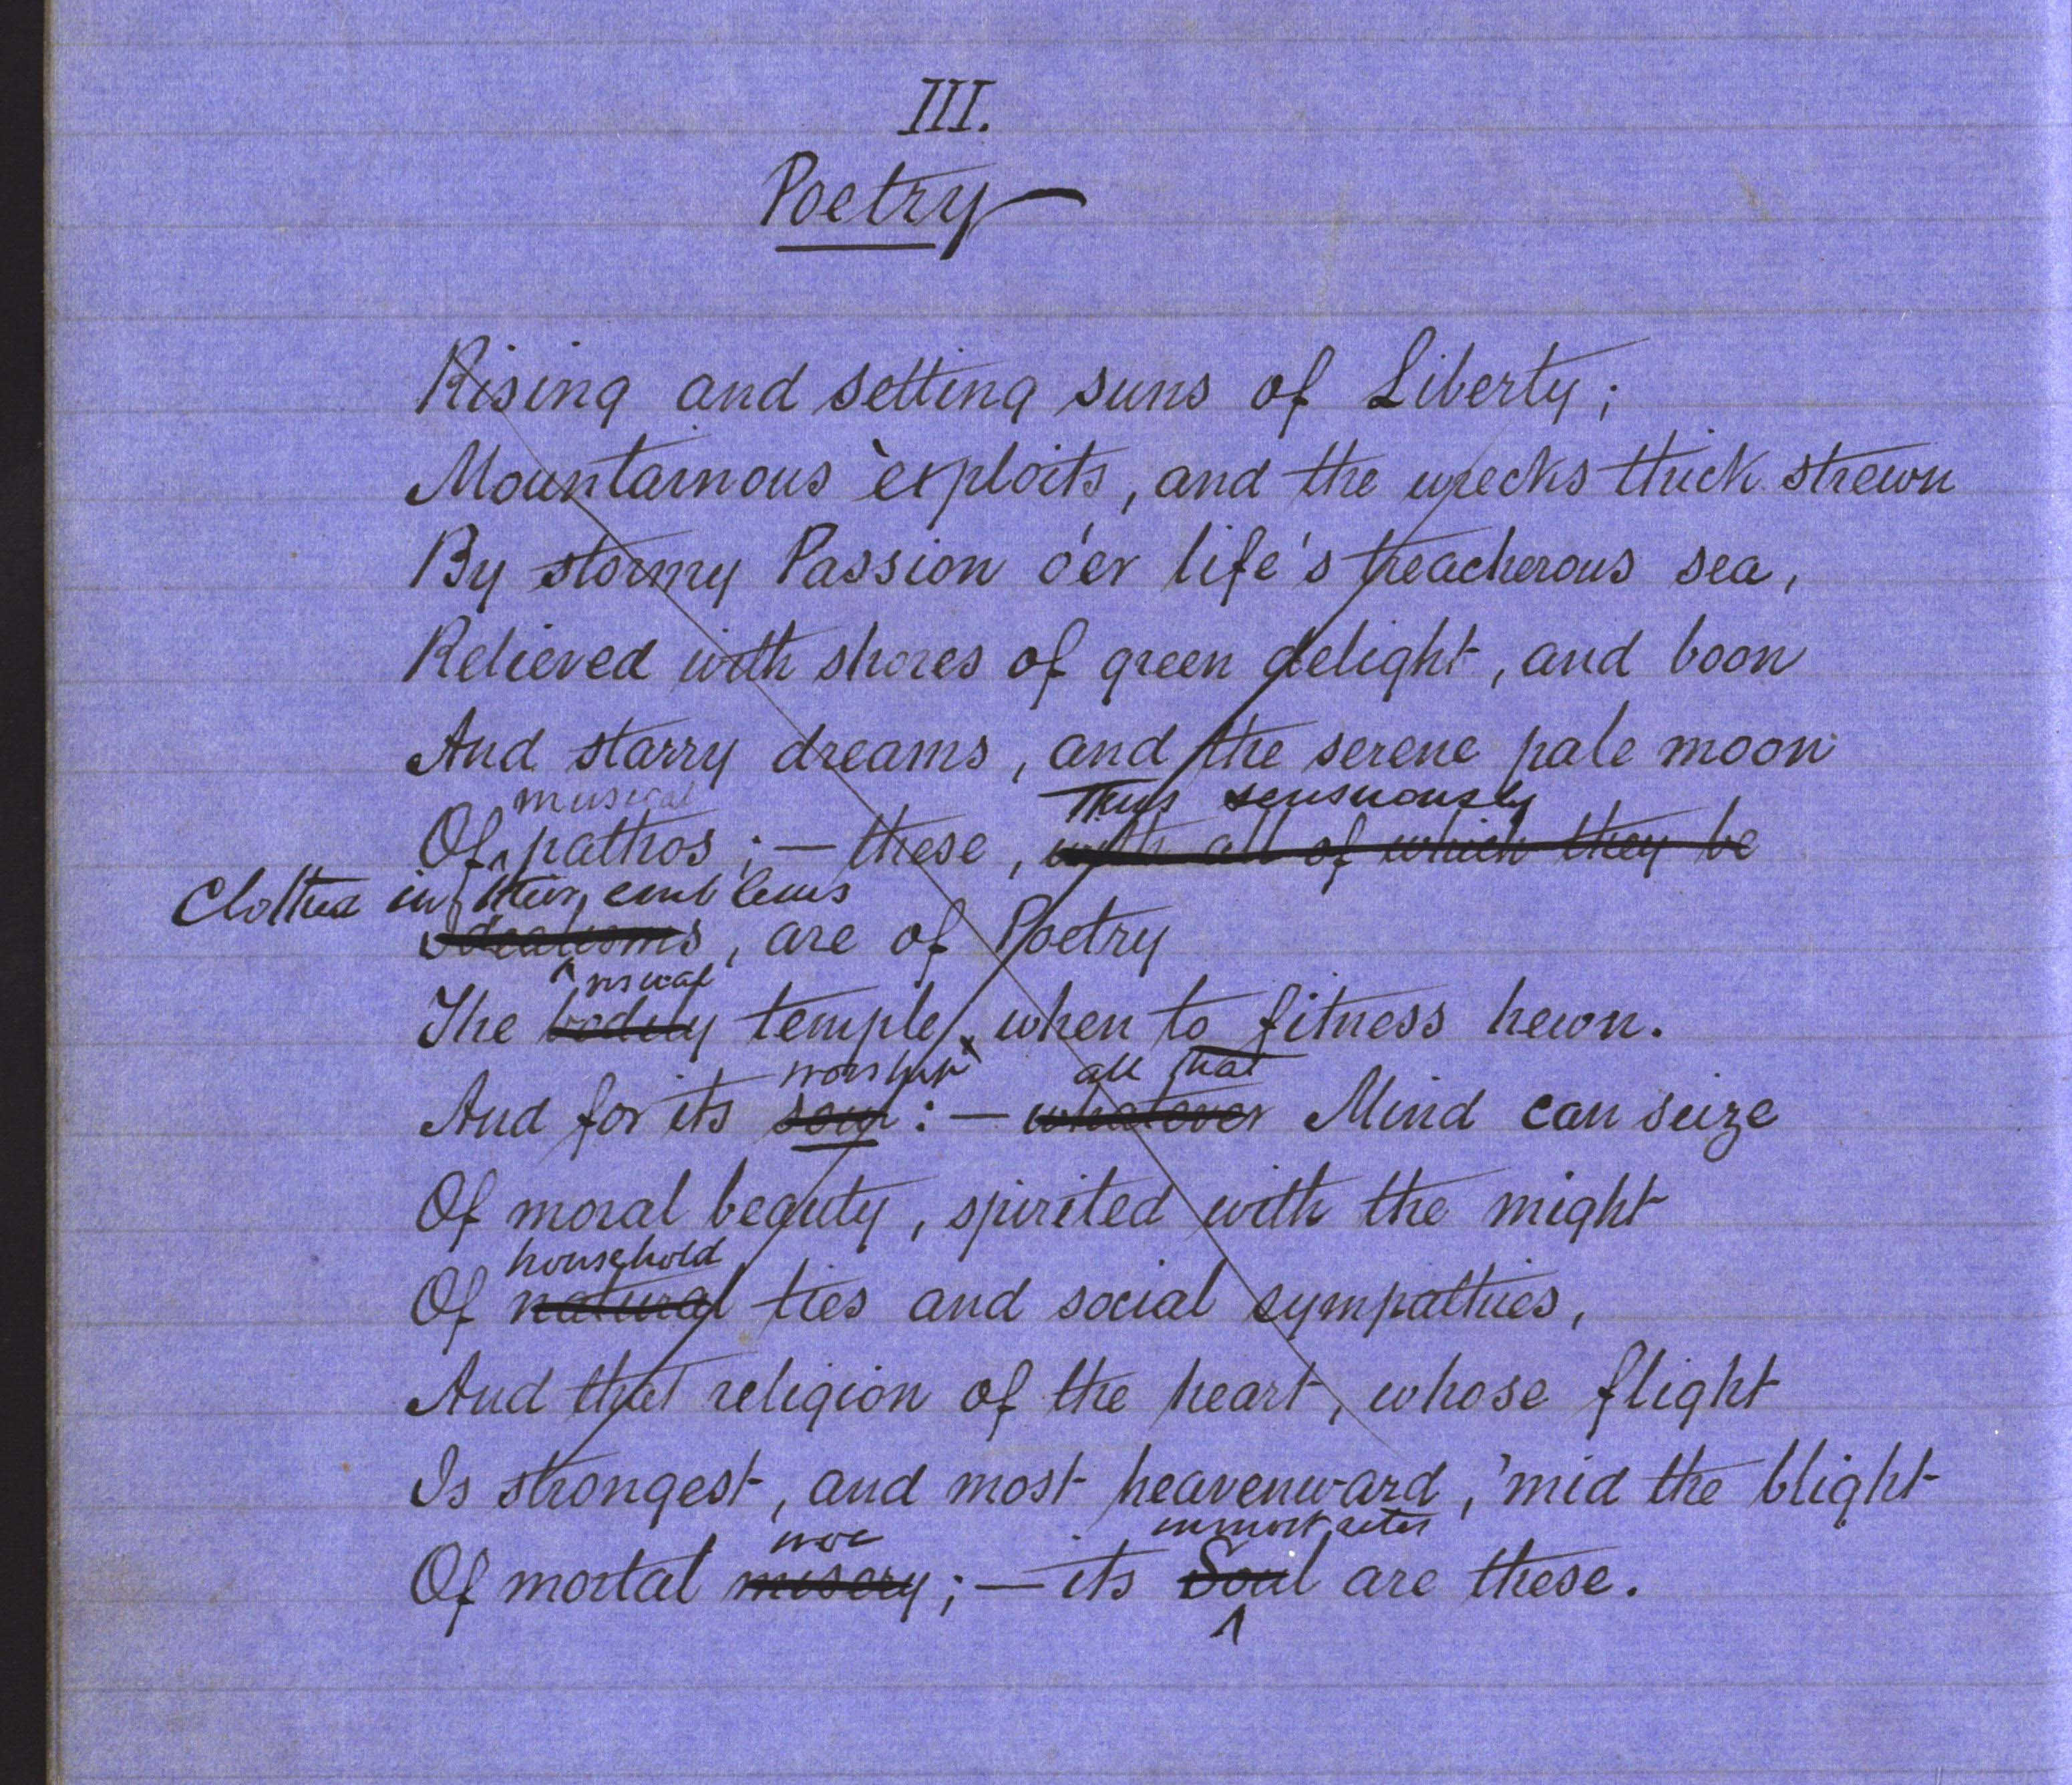 III.
Poetry
Rising and setting suns of Liberty;
Mountainous exploits, and the wrecks thick strewn
By stormy Passion o'er life's treacherous sea,
Relieved with shores of green delight, and boon
And starry dreams, and the serene pale moon
musical
Thus sensuously
Of pathos; — these, with all of which they be
Clothed in their emblems
Idealisms, are of Poetry
visual
The bodily temple, when to fitness hewn.
worship all that
And for its soul: — whatever Mind can seize
Of moral beauty, spirited with the might
household
Of natural ties and social sympathies,
And that religion of the heart, whose flight
Is strongest, and most heavenward, 'mid the blight
woe inmost rites
Of mortal misery; — its Soul are these.